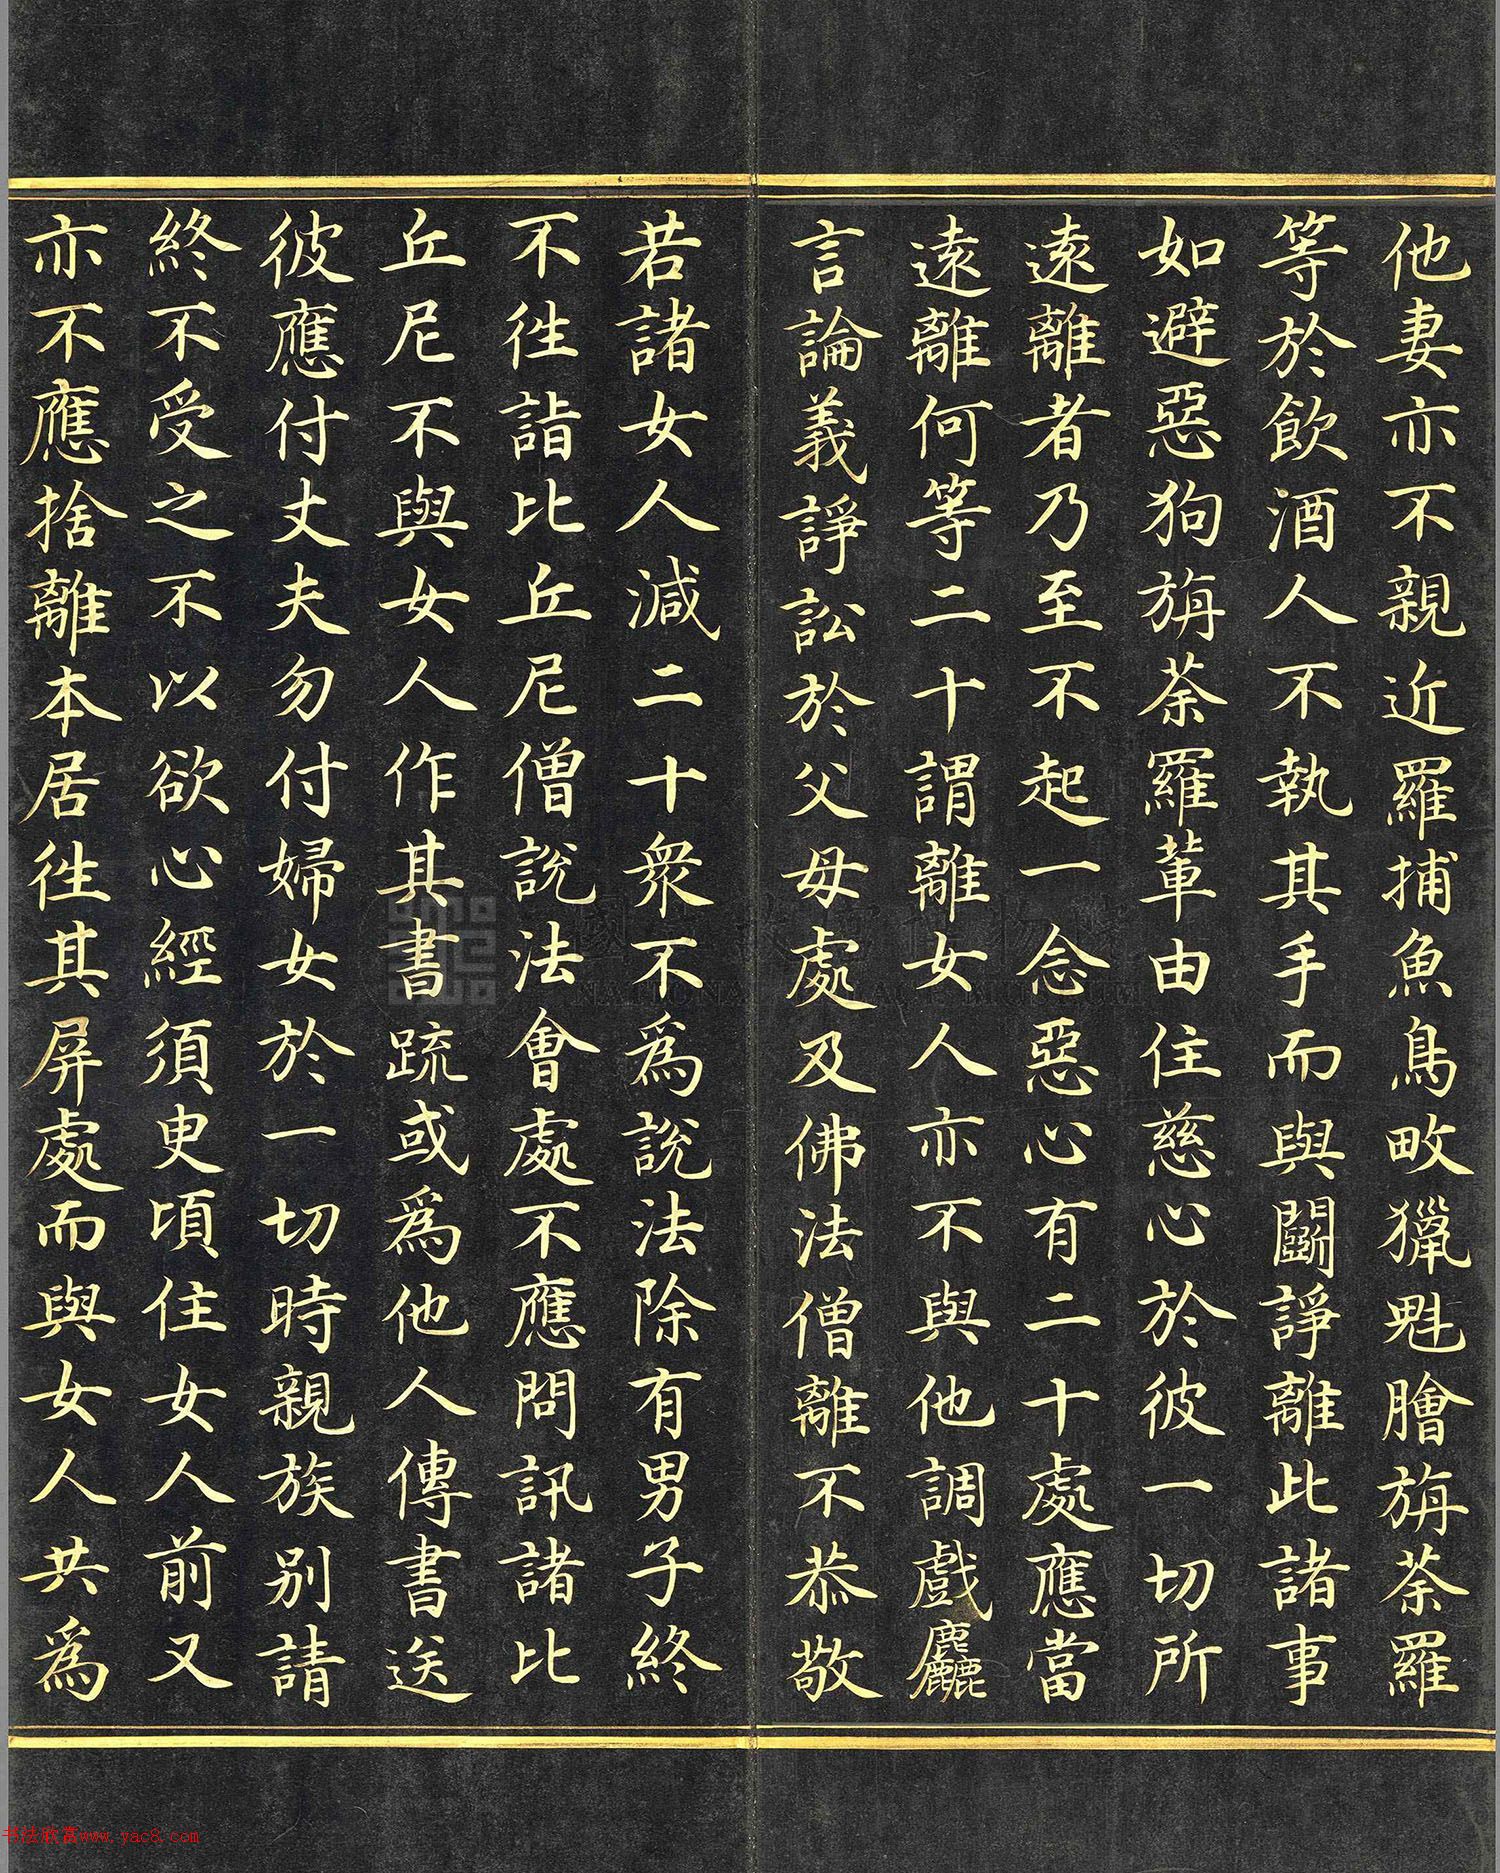 他妻亦不親近羅捕魚鳥畋獵魁膾旃荼羅
等於飲酒人不執其手而與鬬諍離此諸事
如避惡狗旃荼羅輩由住慈心於彼一切所
遠離者乃至不起一念惡心有二十處應當
遠離何等二十謂離女人亦不與他調戲麤
言論義諍訟於父母處及佛法僧離不恭敬
若諸女人減二十衆不為說法除有男子終
不徃詣比丘尼僧說法會處不應問訊諸比
丘尼不與女人作其書疏或為他人傳書送
彼應付丈夫勿付婦女於一切時親族別請
終不受之不以欲心經須臾頃住女人前又
亦不應捨離本居徃其屏處而與女人共為
NATIONAL PALACE MUSEUM
书法欣赏www.yac8.com